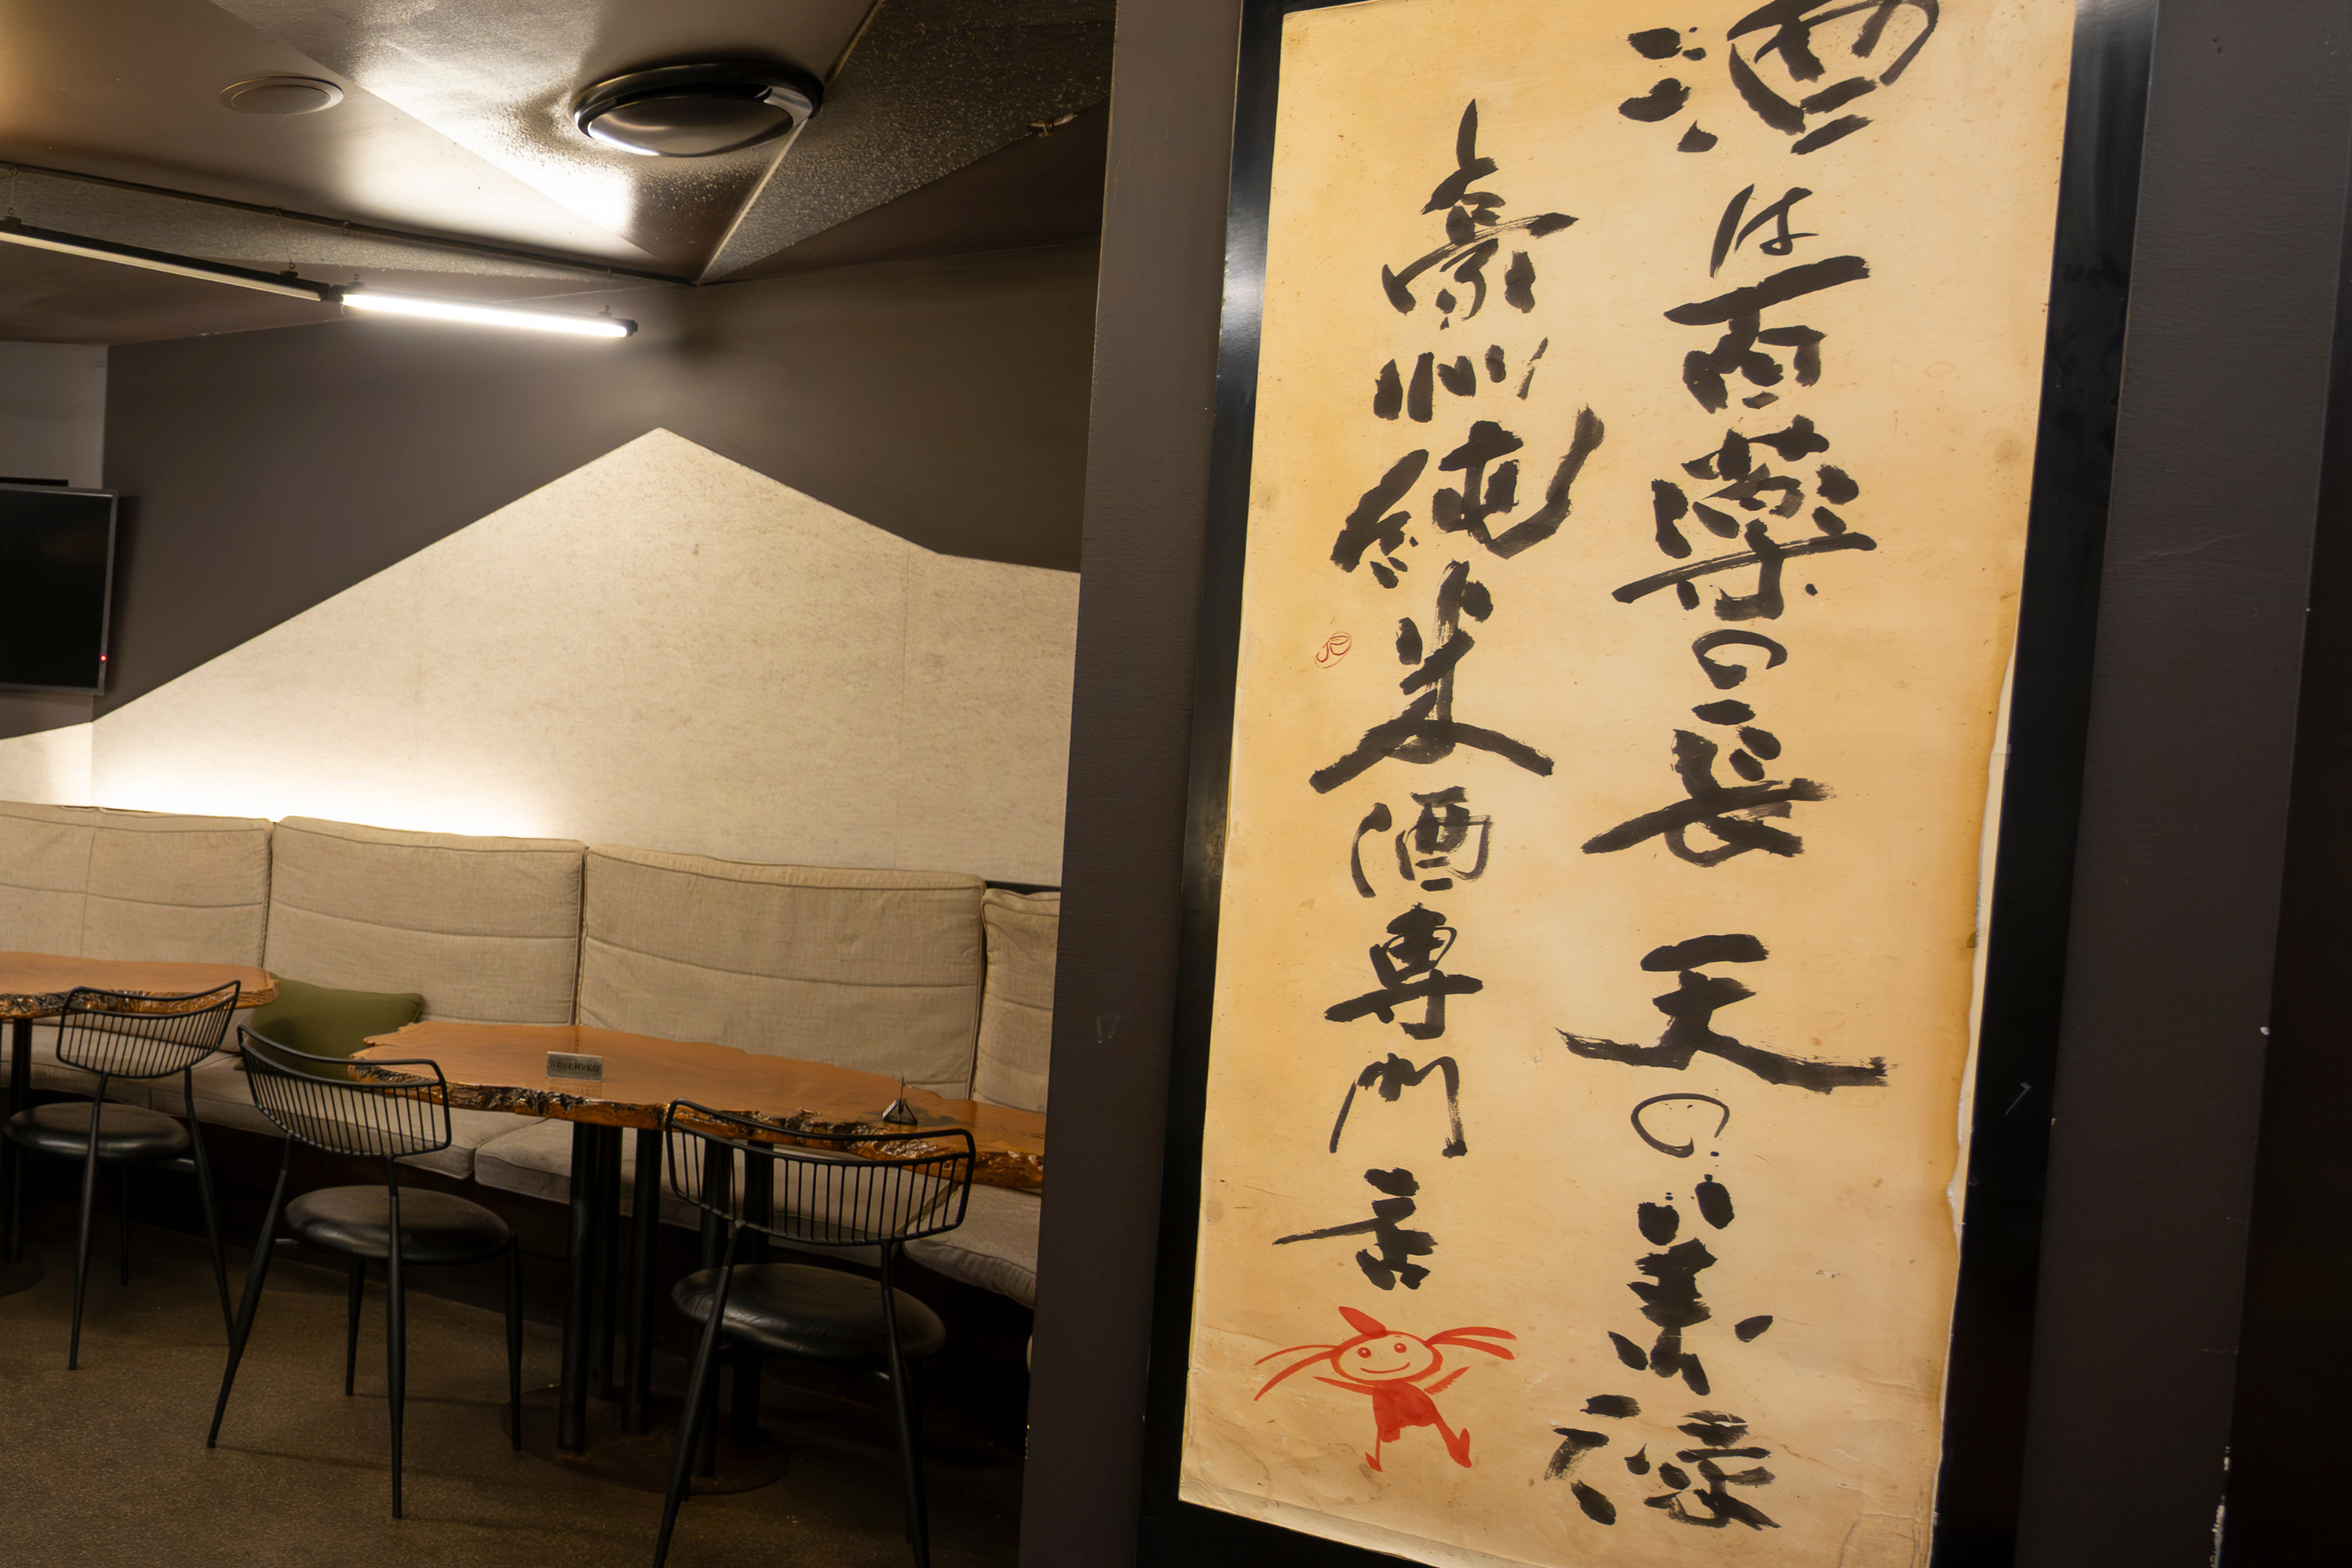 酒は百薬の長 天の美禄
豪州純米酒専門店
RESERVED